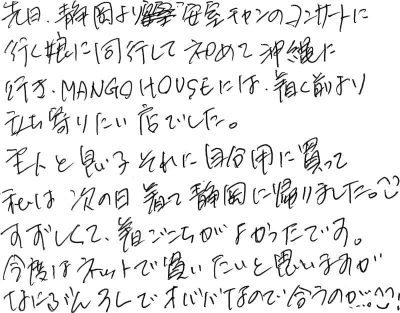 先日、静岡より安室チャンのコンサートに
行く娘に同行して初めて沖縄に
行き、MANGO HOUSEには、着く前より
立ち寄りたい店でした。
主人と息子それに自分用に買って
私は次の日着て静岡に帰りました。
すずしくて、着ごこちがよかったです。
今度はネットで買いたいと思いますが
なにぶん3Lでオババなので合うのが。!